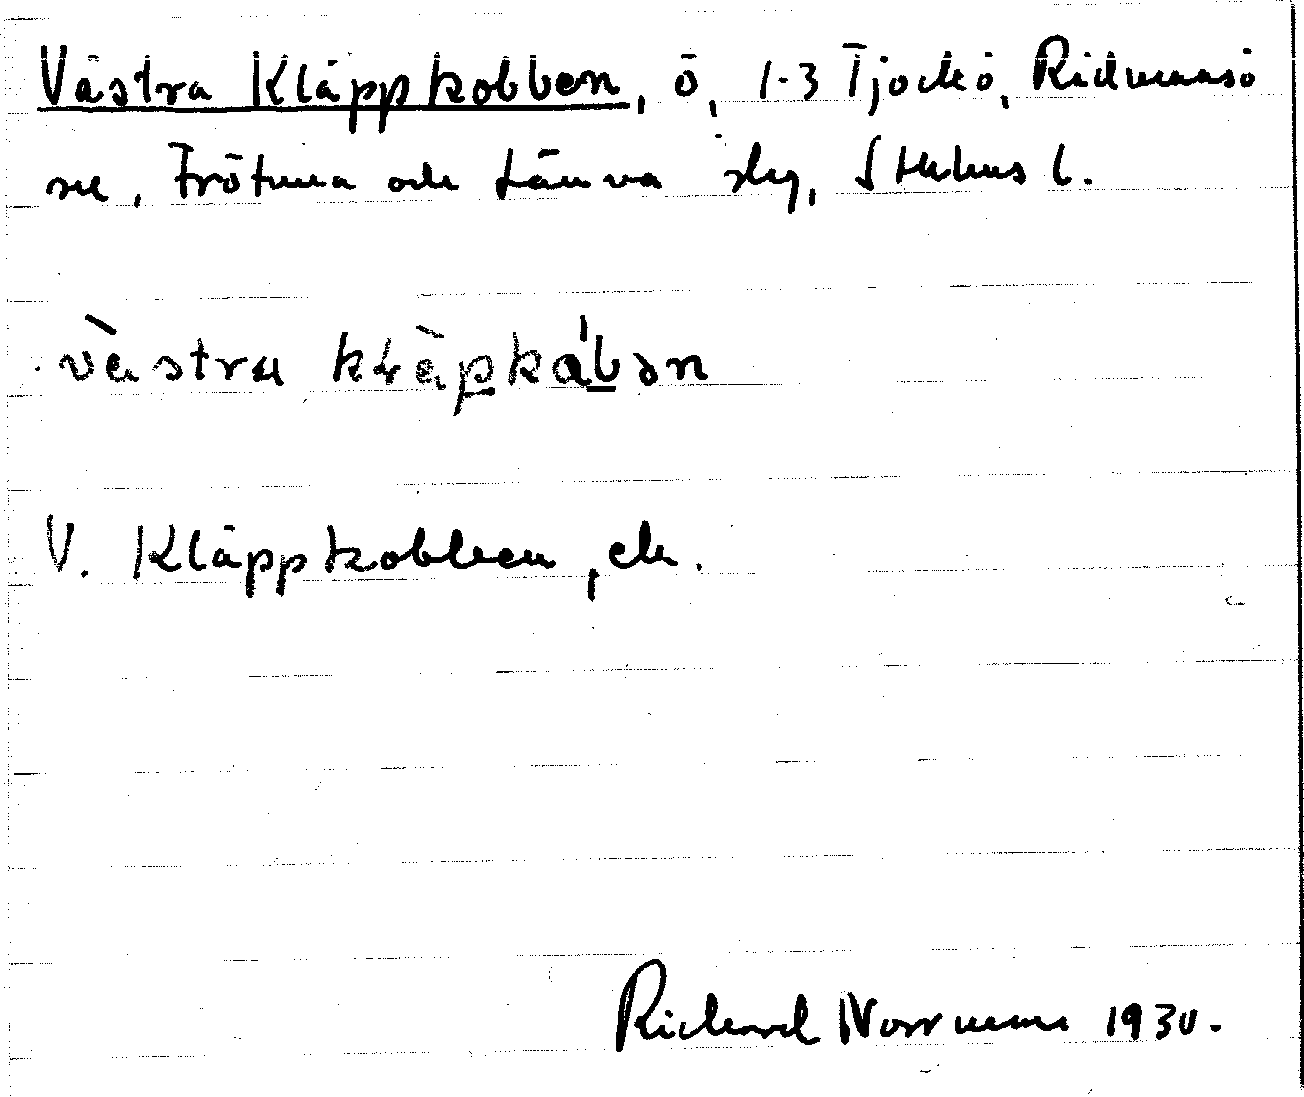 Västra Kläppkobben, ö, 1-3 Tjockö, Rådmansö
sn, Frötuna och Länna skg, Sthlms l.
vä̀stra klä̀pkǻbən
V. Kläppkobben, ek.
Rickard Norrman 1930.